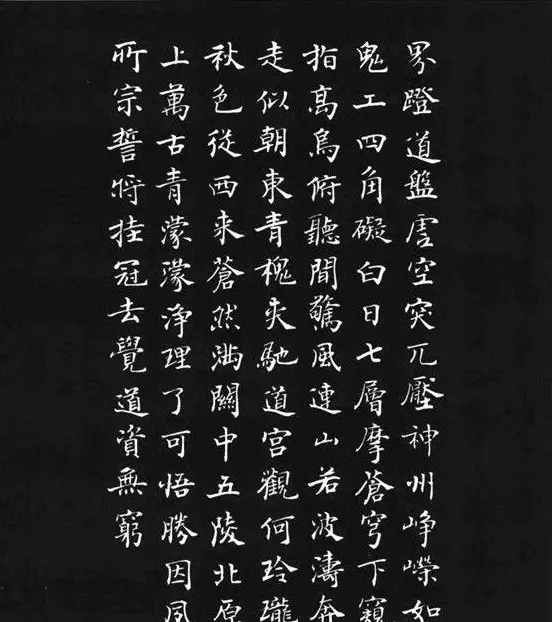 界蹬道盤虗空突兀壓神州崢嶸如
鬼工四角礙白日七層摩蒼穹下窺
指高鳥俯聽聞驚風連山若波濤奔
走似朝東青槐夹馳道宫觀何玲瓏
秋色從西来蒼然满關中五陵北原
上萬古青濛濛淨理了可悟勝因夙
所宗誓将挂冠去覺道資無窮